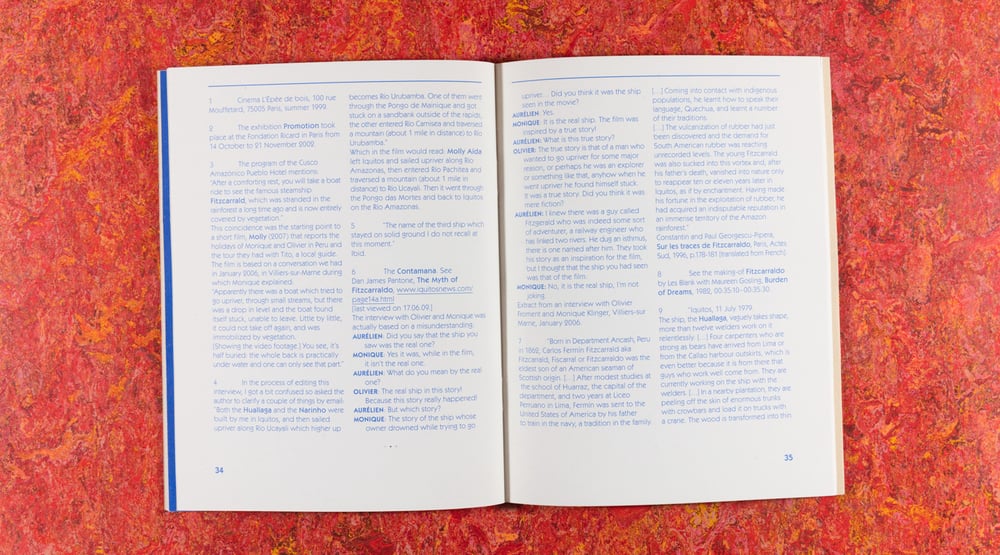 1 Cinema L'Epée de bois, 100 rue
Mouffetard, 75005 Paris, summer 1999.
2 The exhibition Promotion took
place at the Fondation Ricard in Paris from
14 October to 21 November 2002.
3 The program of the Cusco
Amazonico Pueblo Hotel mentions:
"After a comforting rest, you will take a boat
ride to see the famous steamship
Fitzcarrald, which was stranded in the
rainforest a long time ago and is now entirely
covered by vegetation."
This coincidence was the starting point to
a short film, Molly (2007) that reports the
holidays of Monique and Olivier in Peru and
the tour they had with Tito, a local guide.
The film is based on a conversation we had
in January 2006, in Villiers-sur-Marne during
which Monique explained:
"Apparently there was a boat which tried to
go upriver, through small streams, but there
was a drop in level and the boat found
itself stuck, unable to leave. Little by little,
it could not take off again, and was
immobilized by vegetation.
[Showing the video footage:] You see, it's
half buried: the whole back is practically
under water and one can only see that part."
4 In the process of editing this
interview, I got a bit confused so asked the
author to clarify a couple of things by email:
"Both the Huallaga and the Narinho were
built by me in Iquitos, and then sailed
upriver along Rio Ucayali which higher up
becomes Rio Urubamba. One of them went
through the Pongo de Mainique and got
stuck on a sandbank outside of the rapids,
the other entered Rio Camisea and traversed
a mountain (about 1 mile in distance) to Rio
Urubamba."
Which in the film would read: Molly Aida
left Iquitos and sailed upriver along Rio
Amazonas, then entered Rio Pachitea and
traversed a mountain (about 1 mile in
distance) to Rio Ucayali. Then it went through
the Pongo das Mortes and back to Iquitos
on the Rio Amazonas.
5 "The name of the third ship which
stayed on solid ground I do not recall at
this moment."
Ibid.
6 The Contamana. See
Dan James Pantone, The Myth of
Fitzcarraldo, www.iquitosnews.com/
page14a.html
[last viewed on 17.06.09.]
The interview with Olivier and Monique was
actually based on a misunderstanding.
AURÉLIEN: Did you say that the ship you
saw was the real one?
MONIQUE: Yes it was, while in the film,
it isn't the real one.
AURÉLIEN: What do you mean by the real
one?
OLIVIER: The real ship in this story!
Because this story really happened!
AURÉLIEN: But which story?
MONIQUE: The story of the ship whose
owner drowned while trying to go
34
upriver... Did you think it was the ship
seen in the movie?
AURÉLIEN: Yes.
MONIQUE: It is the real ship. The film was
inspired by a true story!
AURÉLIEN: What is this true story?
OLIVIER: The true story is that of a man who
wanted to go upriver for some major
reason, or perhaps he was an explorer
or something like that, anyhow when he
went upriver he found himself stuck.
It was a true story. Did you think it was
mere fiction?
AURÉLIEN: I knew there was a guy called
Fitzgerald who was indeed some sort
of adventurer, a railway engineer who
has linked two rivers. He dug an isthmus,
there is one named after him. They took
his story as an inspiration for the film,
but I thought that the ship you had seen
was that of the film.
MONIQUE: No, it is the real ship, I'm not
joking.
Extract from an interview with Olivier
Froment and Monique Klinger, Villiers-sur-
Marne, January 2006.
7 "Born in Department Ancash, Peru
in 1862, Carlos Fermin Fitzcarrald aka
Fitzcerrald, Fiscarral or Fitzcarraldo was the
eldest son of an American seaman of
Scottish origin. [...] After modest studies at
the school of Huarraz, the capital of the
department, and two years at Liceo
Peruano in Lima, Fermin was sent to the
United States of America by his father
to train in the navy, a tradition in the family.
[...] Coming into contact with indigenous
populations, he learnt how to speak their
language, Quechua, and learnt a number
of their traditions.
[...] The vulcanization of rubber had just
been discovered and the demand for
South American rubber was reaching
unrecorded levels. The young Fitzcarrald
was also sucked into this vortex and, after
his father's death, vanished into nature only
to reappear ten or eleven years later in
Iquitos, as if by enchantment. Having made
his fortune in the exploitation of rubber, he
had acquired an indisputable reputation in
an immense territory of the Amazon
rainforest."
Constantin and Paul Georgescu-Pipera,
Sur les traces de Fitzcarraldo, Paris, Actes
Sud, 1996, p.178-181 [translated from French].
8 See the making-of Fitzcarraldo
by Les Blank with Maureen Gosling, Burden
of Dreams, 1982, 00:35:10–00:35:30.
9 "Iquitos, 11 July 1979
The ship, the Huallaga, vaguely takes shape,
more than twelve welders work on it
relentlessly. [...] Four carpenters who are
strong as bears have arrived from Lima or
from the Callao harbour outskirts, which is
even better because it is from there that
guys who work well come from. They are
currently working on the ship with the
welders. [...] In a nearby plantation, they are
peeling off the skin of enormous trunks
with crowbars and load it on trucks with
a crane. The wood is transformed into thin
35